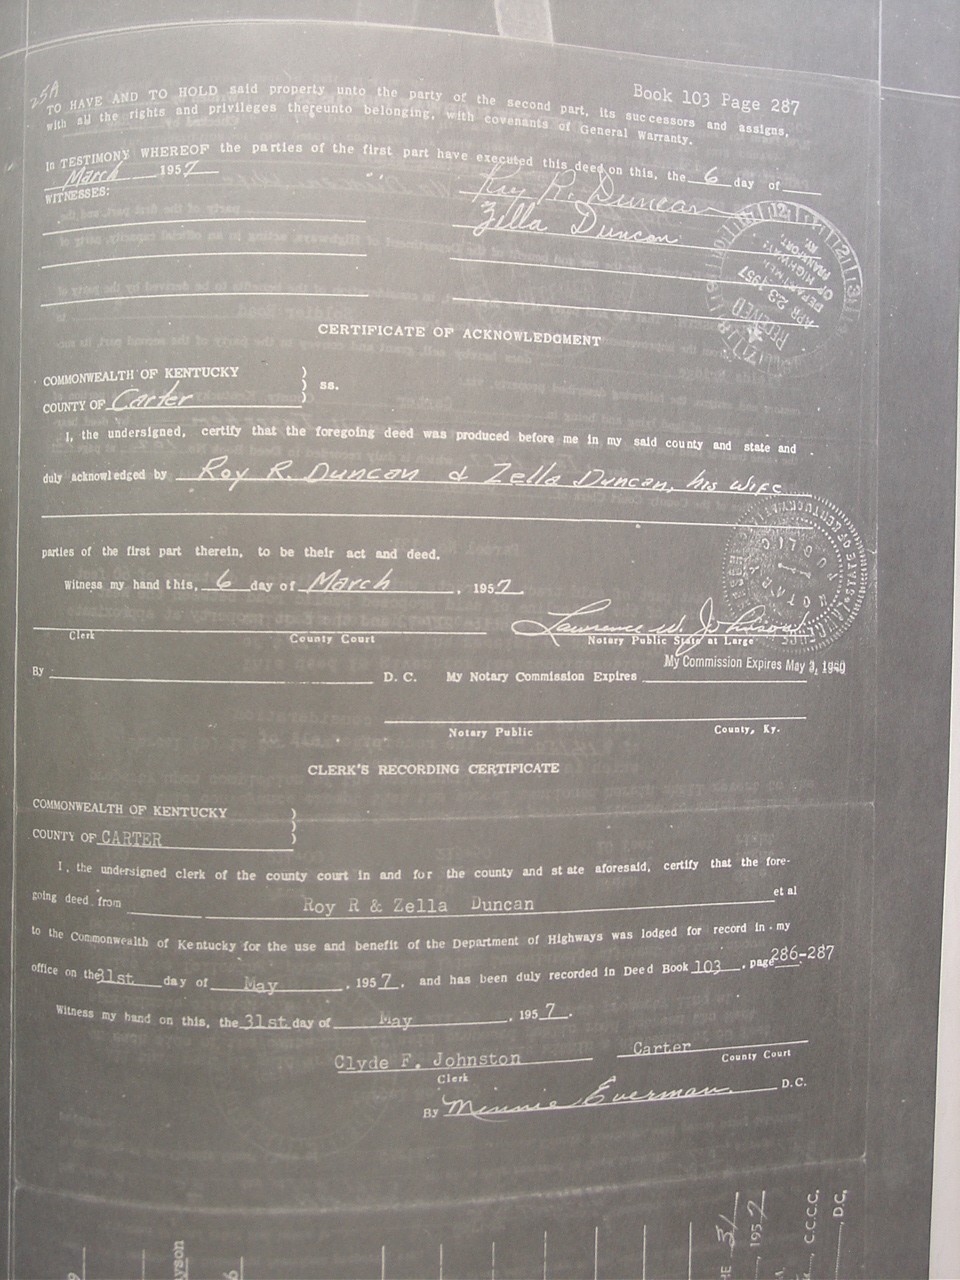 25A
Book 103 Page 287
TO HAVE AND TO HOLD said property unto the party of the second part, its successors and assigns,
with all the rights and privileges thereunto belonging, with covenants of General Warranty.
In TESTIMONY WHEREOF the parties of the first part have executed this deed on this, the 6 day of
March 1957
WITNESSES:
Roy R. Duncan
Zella Duncan
RECEIVED
APR 23 1957
DEPARTMENT
OF HIGHWAYS
FRANKFORT,
KY.
CERTIFICATE OF ACKNOWLEDGMENT
COMMONWEALTH OF KENTUCKY
ss.
COUNTY OF Carter
I, the undersigned, certify that the foregoing deed was produced before me in my said county and state and
duly acknowledged by Roy R. Duncan & Zella Duncan, his wife
parties of the first part therein, to be their act and deed.
Witness my hand this, 6 day of March, 1957
Lawrence W. Johnson
Clerk County Court Notary Public State at Large
My Commission Expires May 3, 1960
By D. C. My Notary Commission Expires
Notary Public County, Ky.
CLERK'S RECORDING CERTIFICATE
COMMONWEALTH OF KENTUCKY
COUNTY OF CARTER
I, the undersigned clerk of the county court in and for the county and state aforesaid, certify that the fore-
going deed from Roy R & Zella Duncan et al
to the Commonwealth of Kentucky for the use and benefit of the Department of Highways was lodged for record in my
office on the 31st day of May, 1957, and has been duly recorded in Deed Book 103, page 286-287
Witness my hand on this, the 31st day of May, 1957.
Clyde F. Johnston Carter County Court
Clerk
By Minnie Everman D.C.
31
, 1957
C.C.C.C.
D.C.